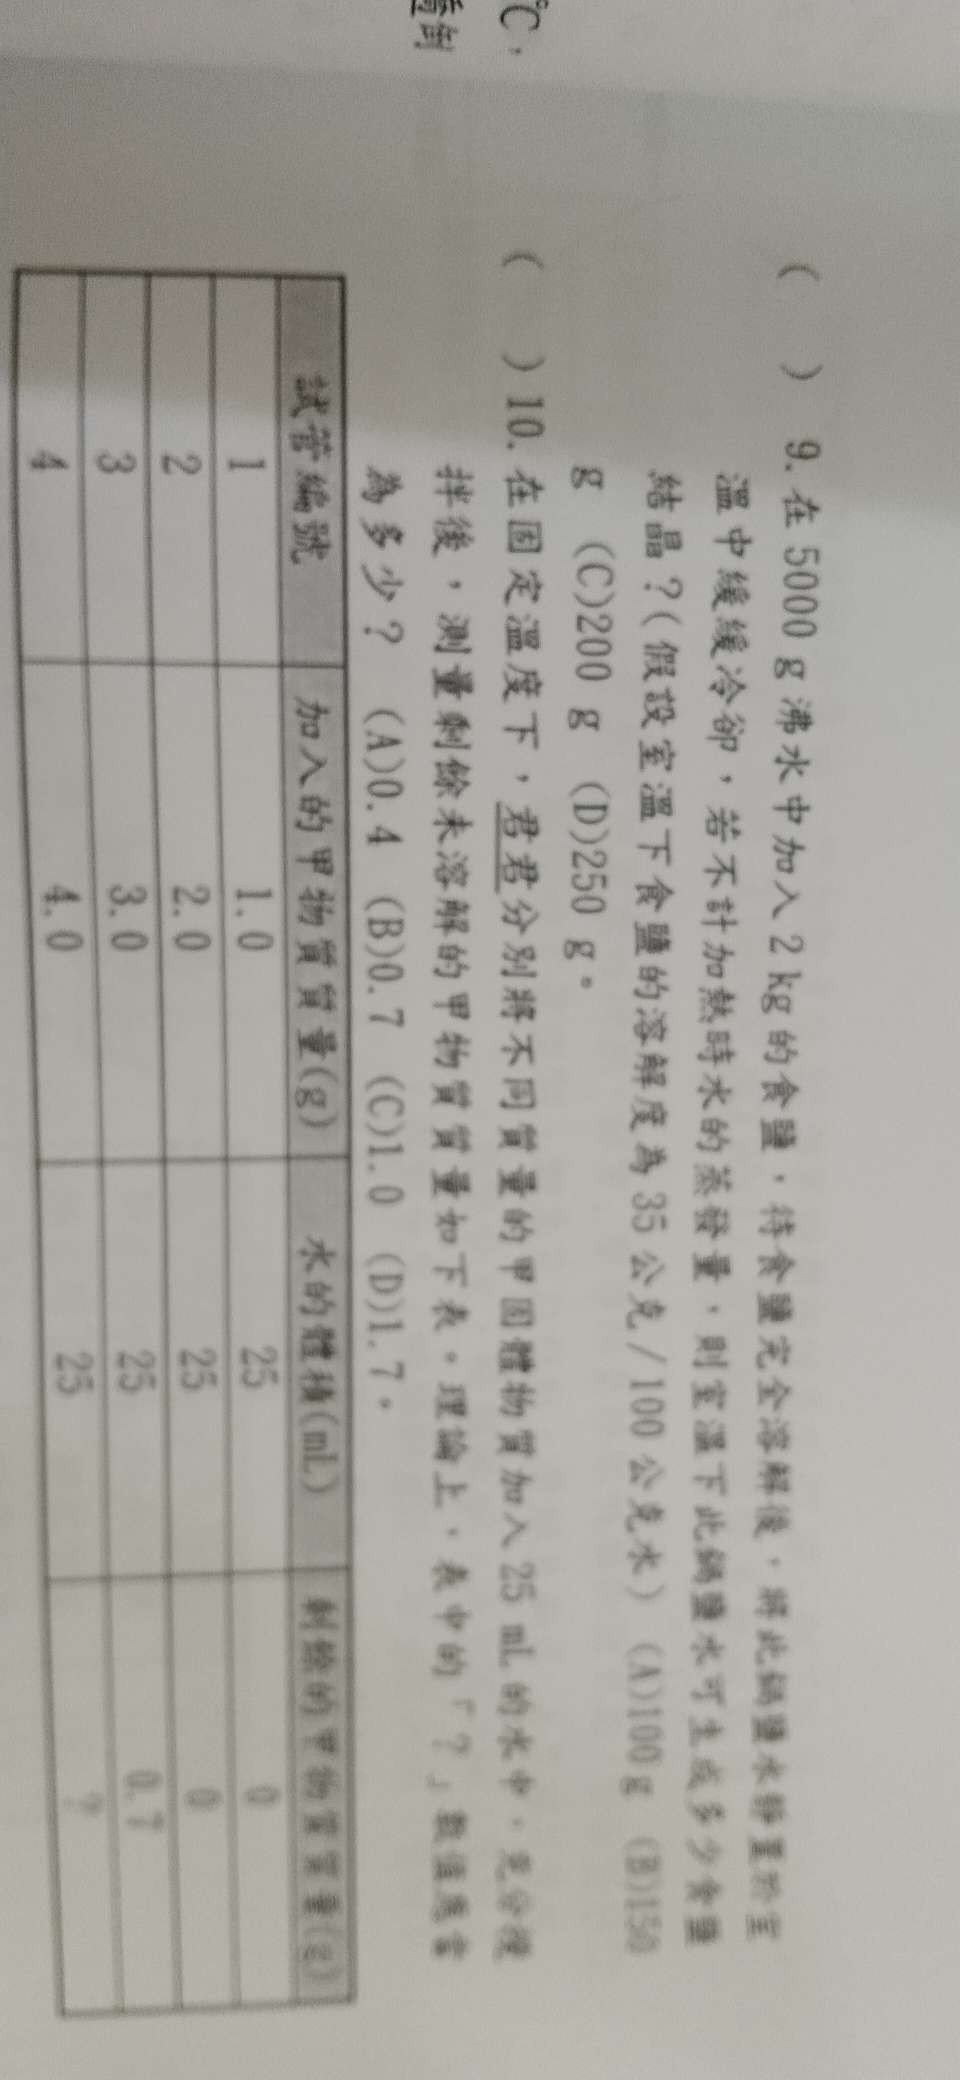 ℃，
倒
(　) 9. 在 5000 g 沸水中加入 2 kg 的食鹽，待食鹽完全溶解後，將此鍋鹽水靜置於室
溫中緩緩冷卻，若不計加熱時水的蒸發量，則室溫下此鍋鹽水可生成多少食鹽
結晶？(假設室溫下食鹽的溶解度為 35 公克／100 公克水) (A)100 g (B)150
g (C)200 g (D)250 g。
(　) 10. 在固定溫度下，君君分別將不同質量的甲固體物質加入 25 mL 的水中，充分攪
拌後，測量剩餘未溶解的甲物質質量如下表。理論上，表中的「？」數值應當
為多少？ (A)0.4 (B)0.7 (C)1.0 (D)1.7。
試管編號 加入的甲物質質量(g) 水的體積(mL) 剩餘的甲物質質量(g)
1 1.0 25 0
2 2.0 25 0
3 3.0 25 0.7
4 4.0 25 ?